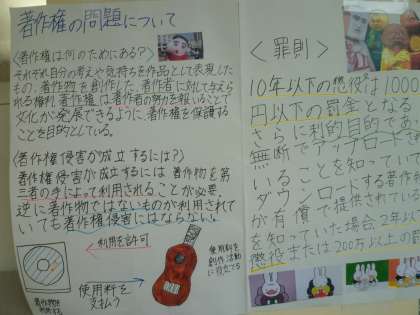 著作権の問題について
〈著作権は何のためにある?〉
それぞれ自分の考えや気持ちを作品として表現した
もの、著作物を創作した、著作者に対して与えら
れる権利。著作権は著作者の努力を報いることで
文化が発展できるように著作権を保護する
ことを目的としている。
〈著作権侵害が成立するには?〉
著作権侵害が成立するには著作物を第
三者の手によって利用されることが必要。
逆に著作物ではないものが利用されて
いても著作権侵害にはならない。
利用を許可
使用料を
支払う
使用料を
創作活動
に役立てる
著作物を
利用する
〈罰則〉
10年以下の懲役は1000
円以下の罰金となる
さらに利的目的であ
無断でアップロードさ
いることを知ってい
ダウンロードする著作物
が有償で提供されている
を知っていた場合、2年以下
懲役または200万以上の罰